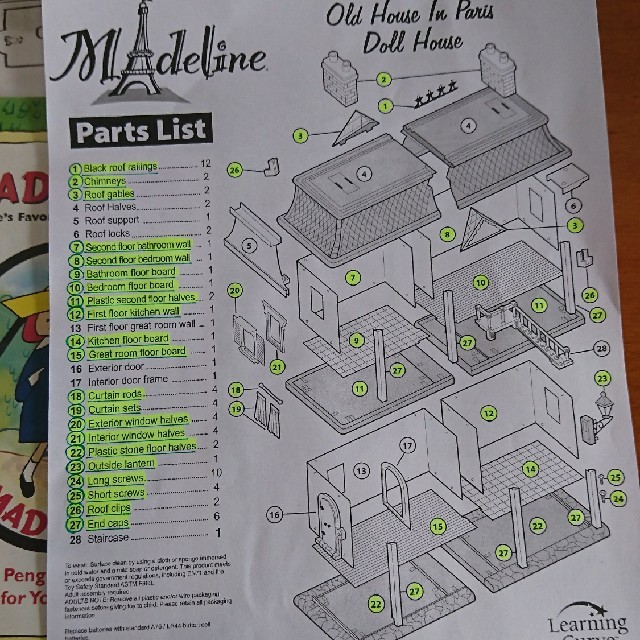 Madeline
Old House In Paris
Doll House
Parts List
1 Black roof railings 12
2 Chimneys 2
3 Roof gables 2
4 Roof Halves 2
5 Roof support 1
6 Roof locks 2
7 Second floor bathroom wall 1
8 Second floor bedroom wall 1
9 Bathroom floor board 1
10 Bedroom floor board 1
11 Plastic second floor halves 2
12 First floor kitchen wall 1
13 First floor great room wall 1
14 Kitchen floor board 1
15 Great room floor board 1
16 Exterior door 1
17 Interior door frame 1
18 Curtain rods 4
19 Curtain sets 4
20 Exterior window halves 4
21 Interior window halves 4
22 Plastic stone floor halves 2
23 Outside lantern 1
24 Long screws 10
25 Short screws 4
26 Roof clips 2
27 End caps 6
28 Staircase 1
2
1
3
4
4
26
6
5
8
3
7
10
20
26
11
27
9
27
21
28
11
27
18
23
19
12
17
13
14
25
24
16
15
22
27
27
22
27
Adult assembly required.
Learning
AD
e's Favor
MAD
Peng
for Yo